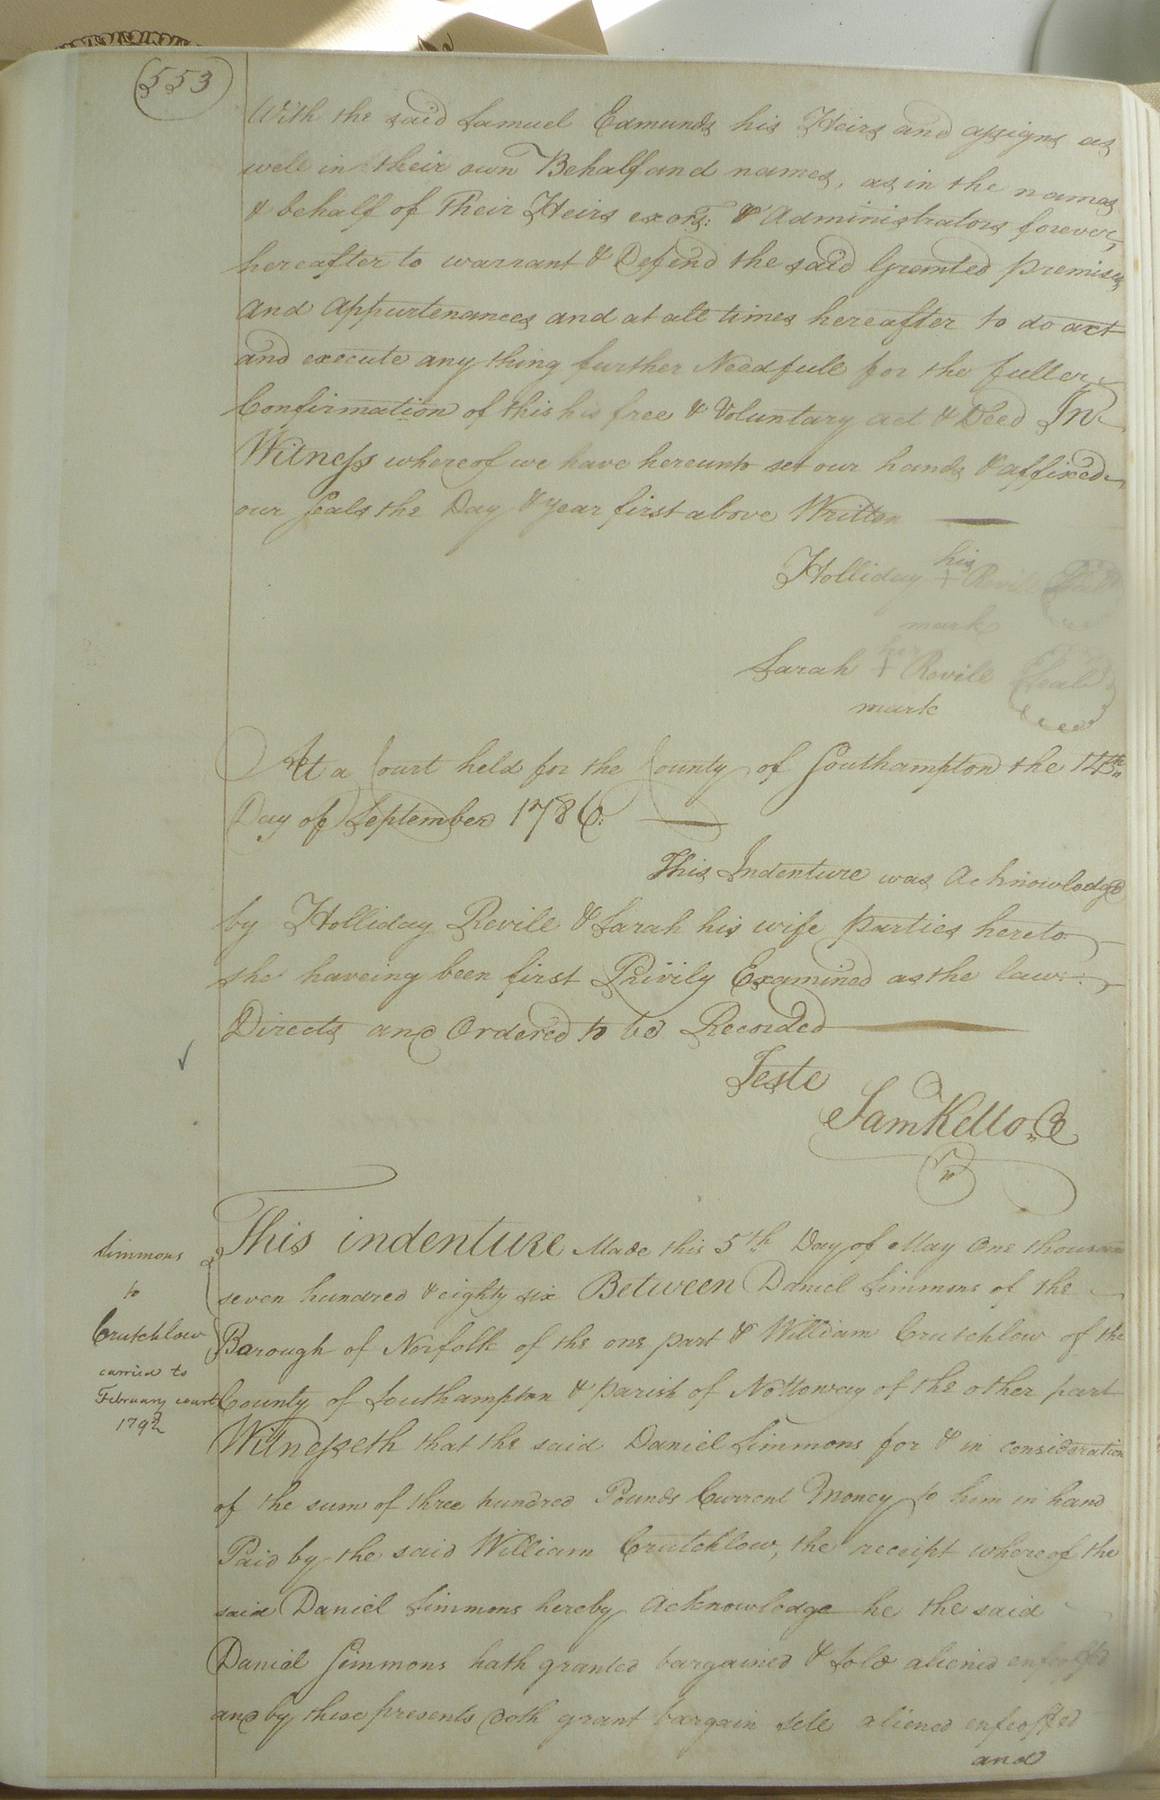 553
With the said Samuel Edmunds his Heirs and assigns as
well in their own Behalf and names, as in the names
& behalf of Their Heirs exors: & Administrators forever,
hereafter to warrant & Defend the said Granted premises
and appurtenances and at all times hereafter to do act
and execute any thing further Needfull for the fuller
Confirmation of this his free & Voluntary act & Deed In
Witness whereof we have hereunto set our hands & affixed
our seals the Day & year first above Written
Holliday his + Revill Seal
mark
Sarah her + Revill Seal
mark
At a Court held for the County of Southampton the 14th
Day of September 1786:
This Indenture was Acknowledge
by Holliday Revill & Sarah his wife parties hereto
she haveing been first Privily Examined as the law
Directs and Ordered to be Recorded
Teste
Sam Kello C
Simmons
to
Crutchlow
carried to
February court
This indenture Made this 5th Day of May One thousand
seven hundred & eighty six Between Daniel Simmons of the
Borough of Norfolk of the one part & William Crutchlow of the
County of Southampton & parish of Nottoway of the other part
Witnesseth that the said Daniel Simmons for & in consideration
of the sum of three hundred Pounds Current Money to him in hand
Paid by the said William Crutchlow, the receipt whereof the
said Daniel Simmons hereby acknowledge he the said
Daniel Simmons hath granted bargained & sold aliened enfeoffed
and by these presents doth grant bargain sell aliened enfeoffed
and